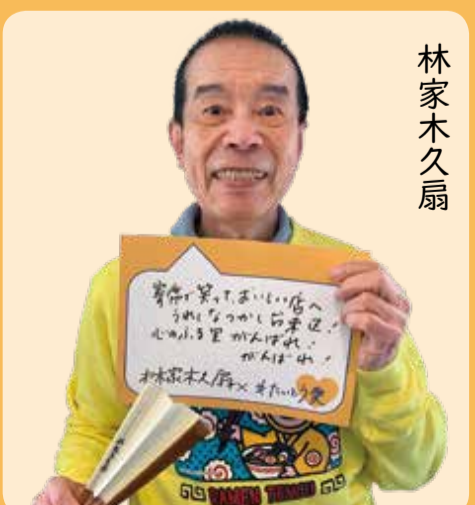 林家木久扇
寄席で笑って、おいしい店へ
うれしなつかし台東区!
心のふる里 がんばれ!
がんばれ!
林家木久扇×
RAMEN